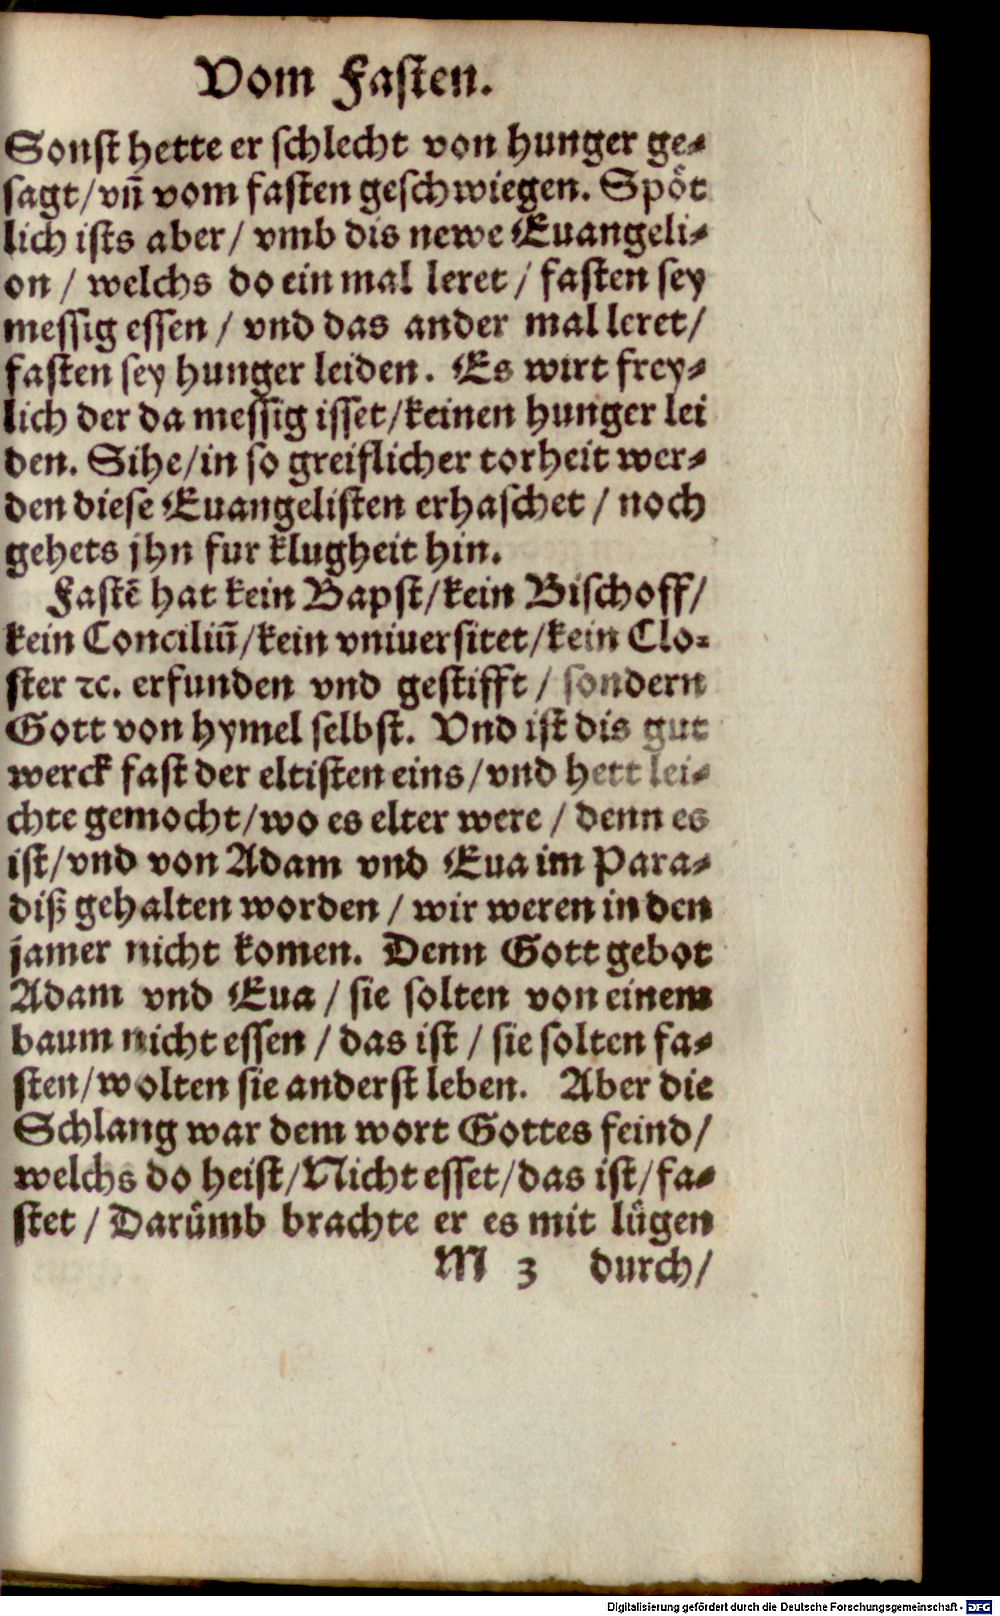 Vom Fasten.
Sonst hette er schlecht von hunger ge⸗
sagt/vñ vom fasten geschwiegen. Spöt
lich ists aber/ vmb dis newe Euangeli⸗
on / welchs do ein mal leret / fasten sey
messig essen / vnd das ander mal leret/
fasten sey hunger leiden. Es wirt frey⸗
lich der da messig isset/keinen hunger lei
den. Sihe/in so greiflicher torheit wer⸗
den diese Euangelisten erhaschet / noch
gehets jhn fur klugheit hin.
Fastē hat kein Bapst/kein Bischoff/
kein Conciliū/kein vniuersitet/kein Clo⸗
ster ꝛc. erfunden vnd gestifft / sondern
Gott von hymel selbst. Vnd ist dis gut
werck fast der eltisten eins/vnd hett lei⸗
chte gemocht/wo es elter were / denn es
ist/vnd von Adam vnd Eua im Para⸗
diß gehalten worden / wir weren in den
jamer nicht komen. Denn Gott gebot
Adam vnd Eua / sie solten von einem
baum nicht essen / das ist / sie solten fa⸗
sten/wolten sie anderst leben. Aber die
Schlang war dem wort Gottes feind/
welchs do heist/Nicht esset/das ist/fa⸗
stet / Darümb brachte er es mit lügen
M 3 durch/
Digitalisierung gefördert durch die Deutsche Forschungsgemeinschaft - DFG